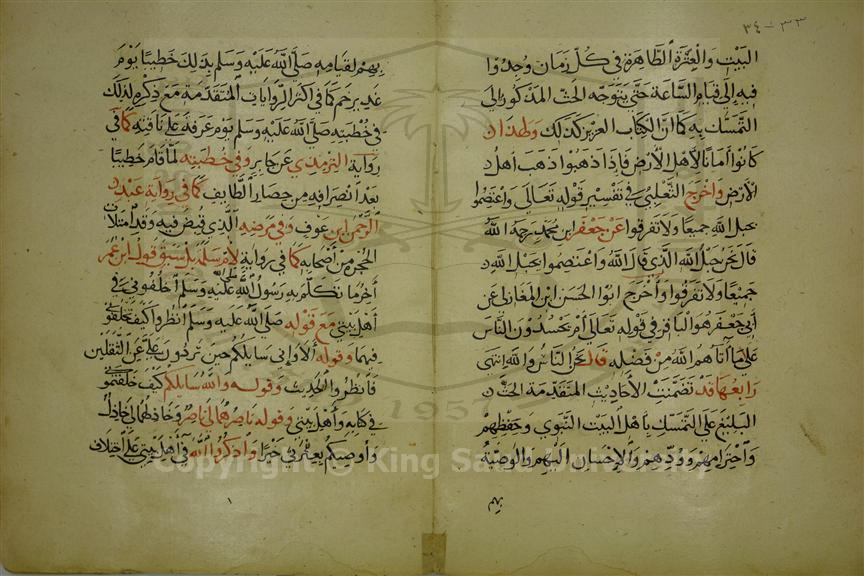 ٣٣ - ٣٤
البيت والعترة الطاهرة في كل زمان وجدوا
فيه إلى قيام الساعة حتى يتوجه الحث المذكور إلى
التمسك به كما ان الكتاب العزيز كذلك ولهذا
كانوا امانا لاهل الارض فإذا ذهبوا ذهب اهل
الارض واخرج الثعلبي في تفسير قوله تعالى واعتصموا
بحبل الله جميعا ولا تفرقوا عن جعفر ابن محمد رحمة الله
قال نحن حبل الله الذي قال الله واعتصموا بحبل الله
جميعا ولا تفرقوا وأخرج ابوا الحسن ابن المغازلي عن
أبي جعفر هو الباقر في قوله تعالى أم يحسدون الناس
على ما آتاهم الله من فضله قال نحن الناس والله انتهى
رابعها قد تضمنت الأحاديث المتقدمة الحث
البليغ على التمسك باهل البيت النبوي وحفظهم
واحترامهم وودهم والإحسان اليهم والوصية
بهم
بهم لقيامه صلى الله عليه وسلم بذلك خطيبا يوم
غدير خم كما في اكثر الروايات المتقدمة مع ذكره لذلك
في خطبته صلى الله عليه وسلم يوم عرفة على ناقته كما في
رواية الترمذي عن جابر وفي خطبته لما قام خطيبا
بعد انصرافه من حصار الطايف كما في رواية عبد
الرحمن ابن عوف وفي مرضه الذي قبض فيه وقد امتلأت
الحجرة من أصحابه كما في رواية لأم سلمة بل سبق قول ابن عمر
آخر ما تكلم به رسول الله صلى الله عليه وسلم اخلفوني في
أهل بيتي مع قوله صلى الله عليه وسلم انظروا كيف تخلفوني
فيهما وقوله ألا وإني سايلكم حين تردون علي عن الثقلين
فانظروا الحديث وقوله والله سايلكم كيف خلفتموني
في كتابه وأهل بيتي وقوله ناصرهما لي ناصر وخاذلهما لي خاذل
وأوصيكم بعترتي خيرا واذكروا الله في أهل بيتي على اختلاف
١
1957
Copyright © King Saud University